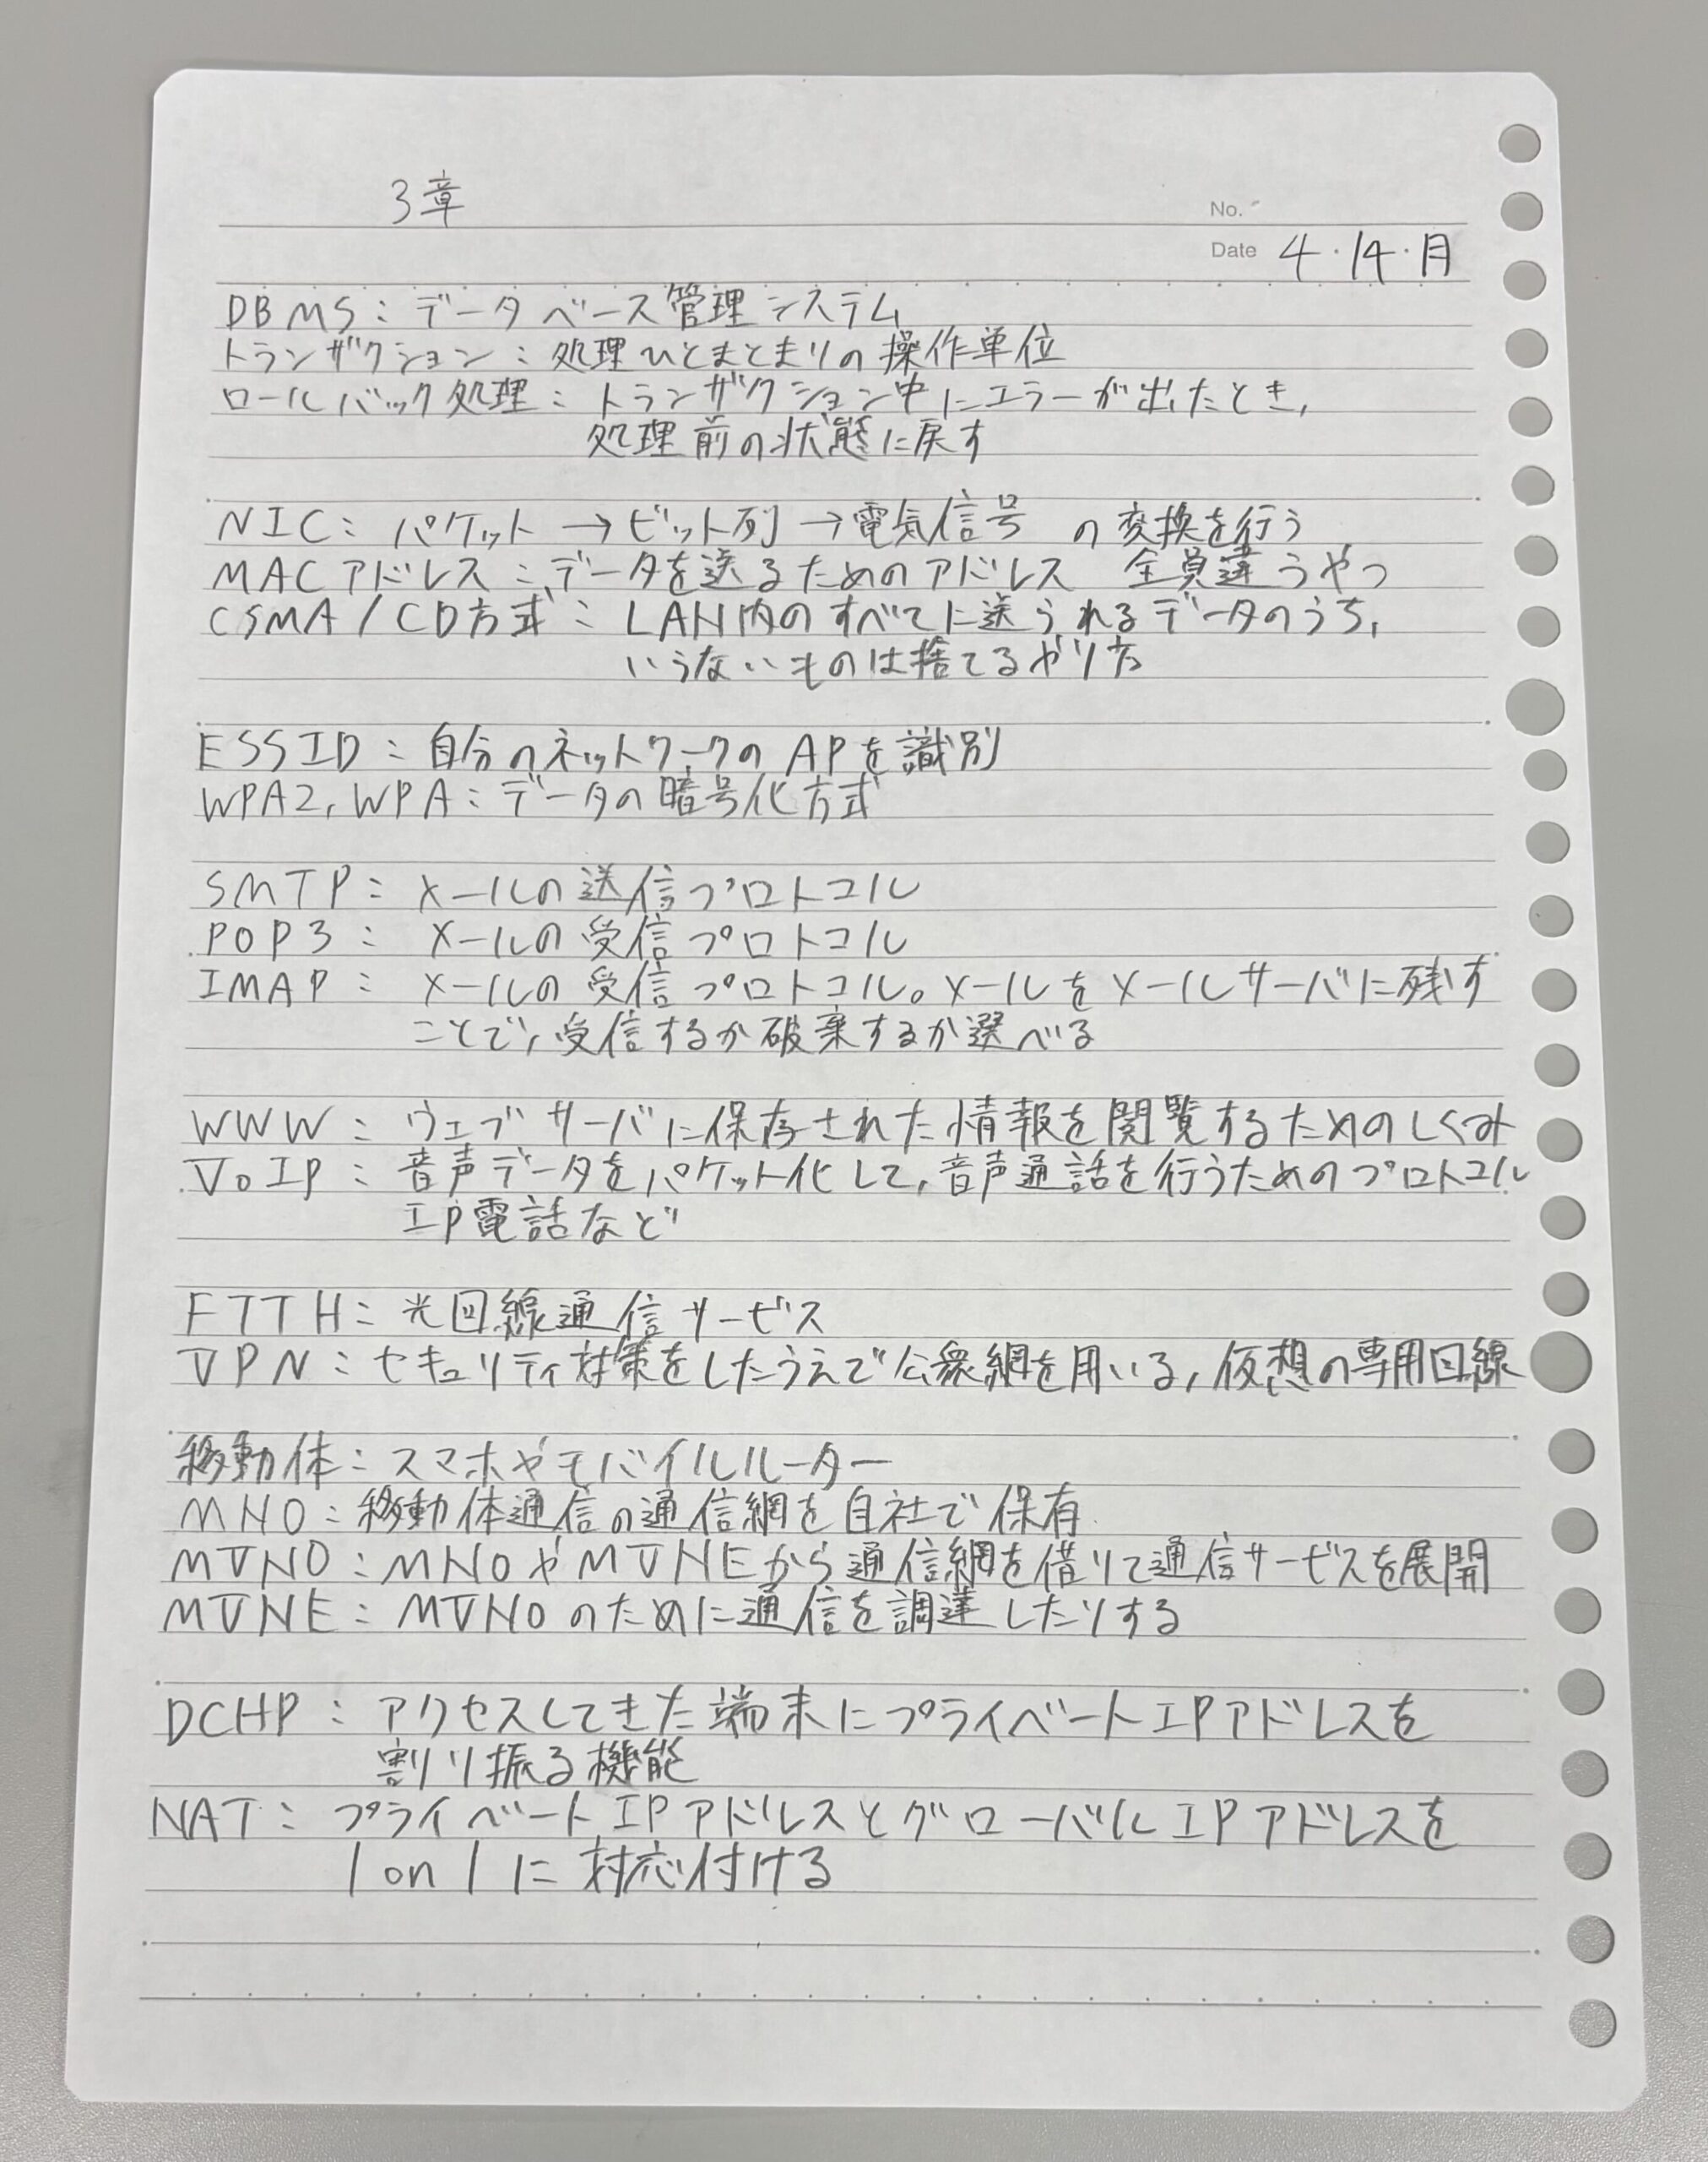 3章
No.
Date 4・14・月
DBMS：データベース管理システム
トランザクション：処理ひとまとまりの操作単位
ロールバック処理：トランザクション中にエラーが出たとき，
処理前の状態に戻す
NIC：パケット→ビット列→電気信号 の変換を行う
MACアドレス：データを送るためのアドレス 全員違うやつ
CSMA/CD方式：LAN内のすべてに送られるデータのうち，
いらないものは捨てるやり方
ESSID：自分のネットワークのAPを識別
WPA2，WPA：データの暗号化方式
SMTP：メールの送信プロトコル
POP3：メールの受信プロトコル
IMAP：メールの受信プロトコル。メールをメールサーバに残す
ことで，受信するか破棄するか選べる
WWW：ウェブサーバに保存された情報を閲覧するためのしくみ
VoIP：音声データをパケット化して，音声通話を行うためのプロトコル
IP電話など
FTTH：光回線通信サービス
VPN：セキュリティ対策をしたうえで公衆網を用いる，仮想の専用回線
移動体：スマホやモバイルルーター
MNO：移動体通信の通信網を自社で保有
MVNO：MNOやMVNEから通信網を借りて通信サービスを展開
MVNE：MVNOのために通信を調達したりする
DCHP：アクセスしてきた端末にプライベートIPアドレスを
割り振る機能
NAT：プライベートIPアドレスとグローバルIPアドレスを
1on1に対応付ける